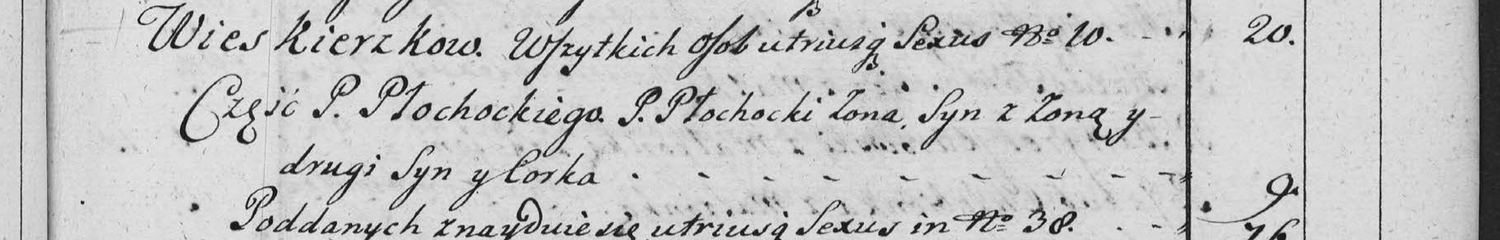 Wies Kierzkow. Wszytkich Osob utriusq Sexus No 10. - 20.
Część P. Płochockiego. P. Płochocki Zona, Syn z Zoną y
drugi Syn y Corka . - - - - - - - 9.
Poddanych znayduie się utriusq Sexus in No 38. . - 76